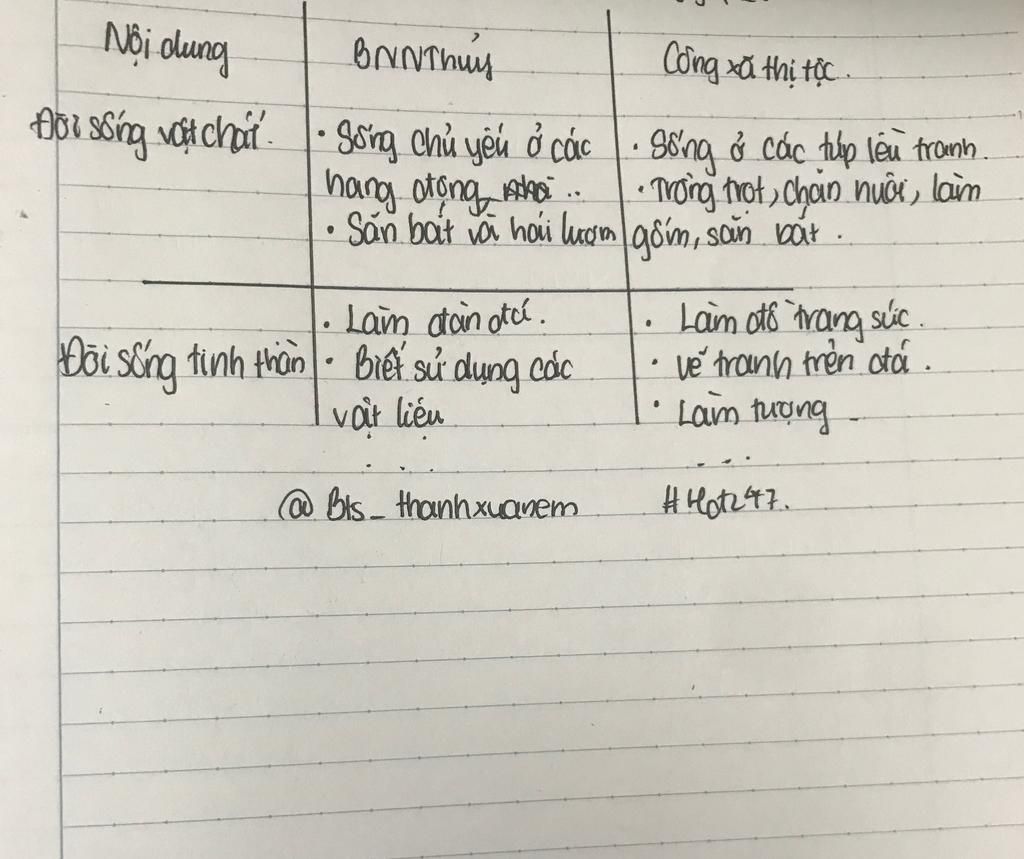 Nội dung BNNThủy Công xã thị tộc.
Đời sống vật chất. • Sống chủ yếu ở các • Sống ở các túp lều tranh.
hang động, .. • Trồng trọt, chăn nuôi, làm
• Săn bắt và hái lượm gốm, săn bắt.
• Làm đàn đá. • Làm đồ trang sức.
Đời sống tinh thần • Biết sử dụng các • vẽ tranh trên đá.
vật liệu • Làm tượng
... ...
@ Bts_thanhxuanem